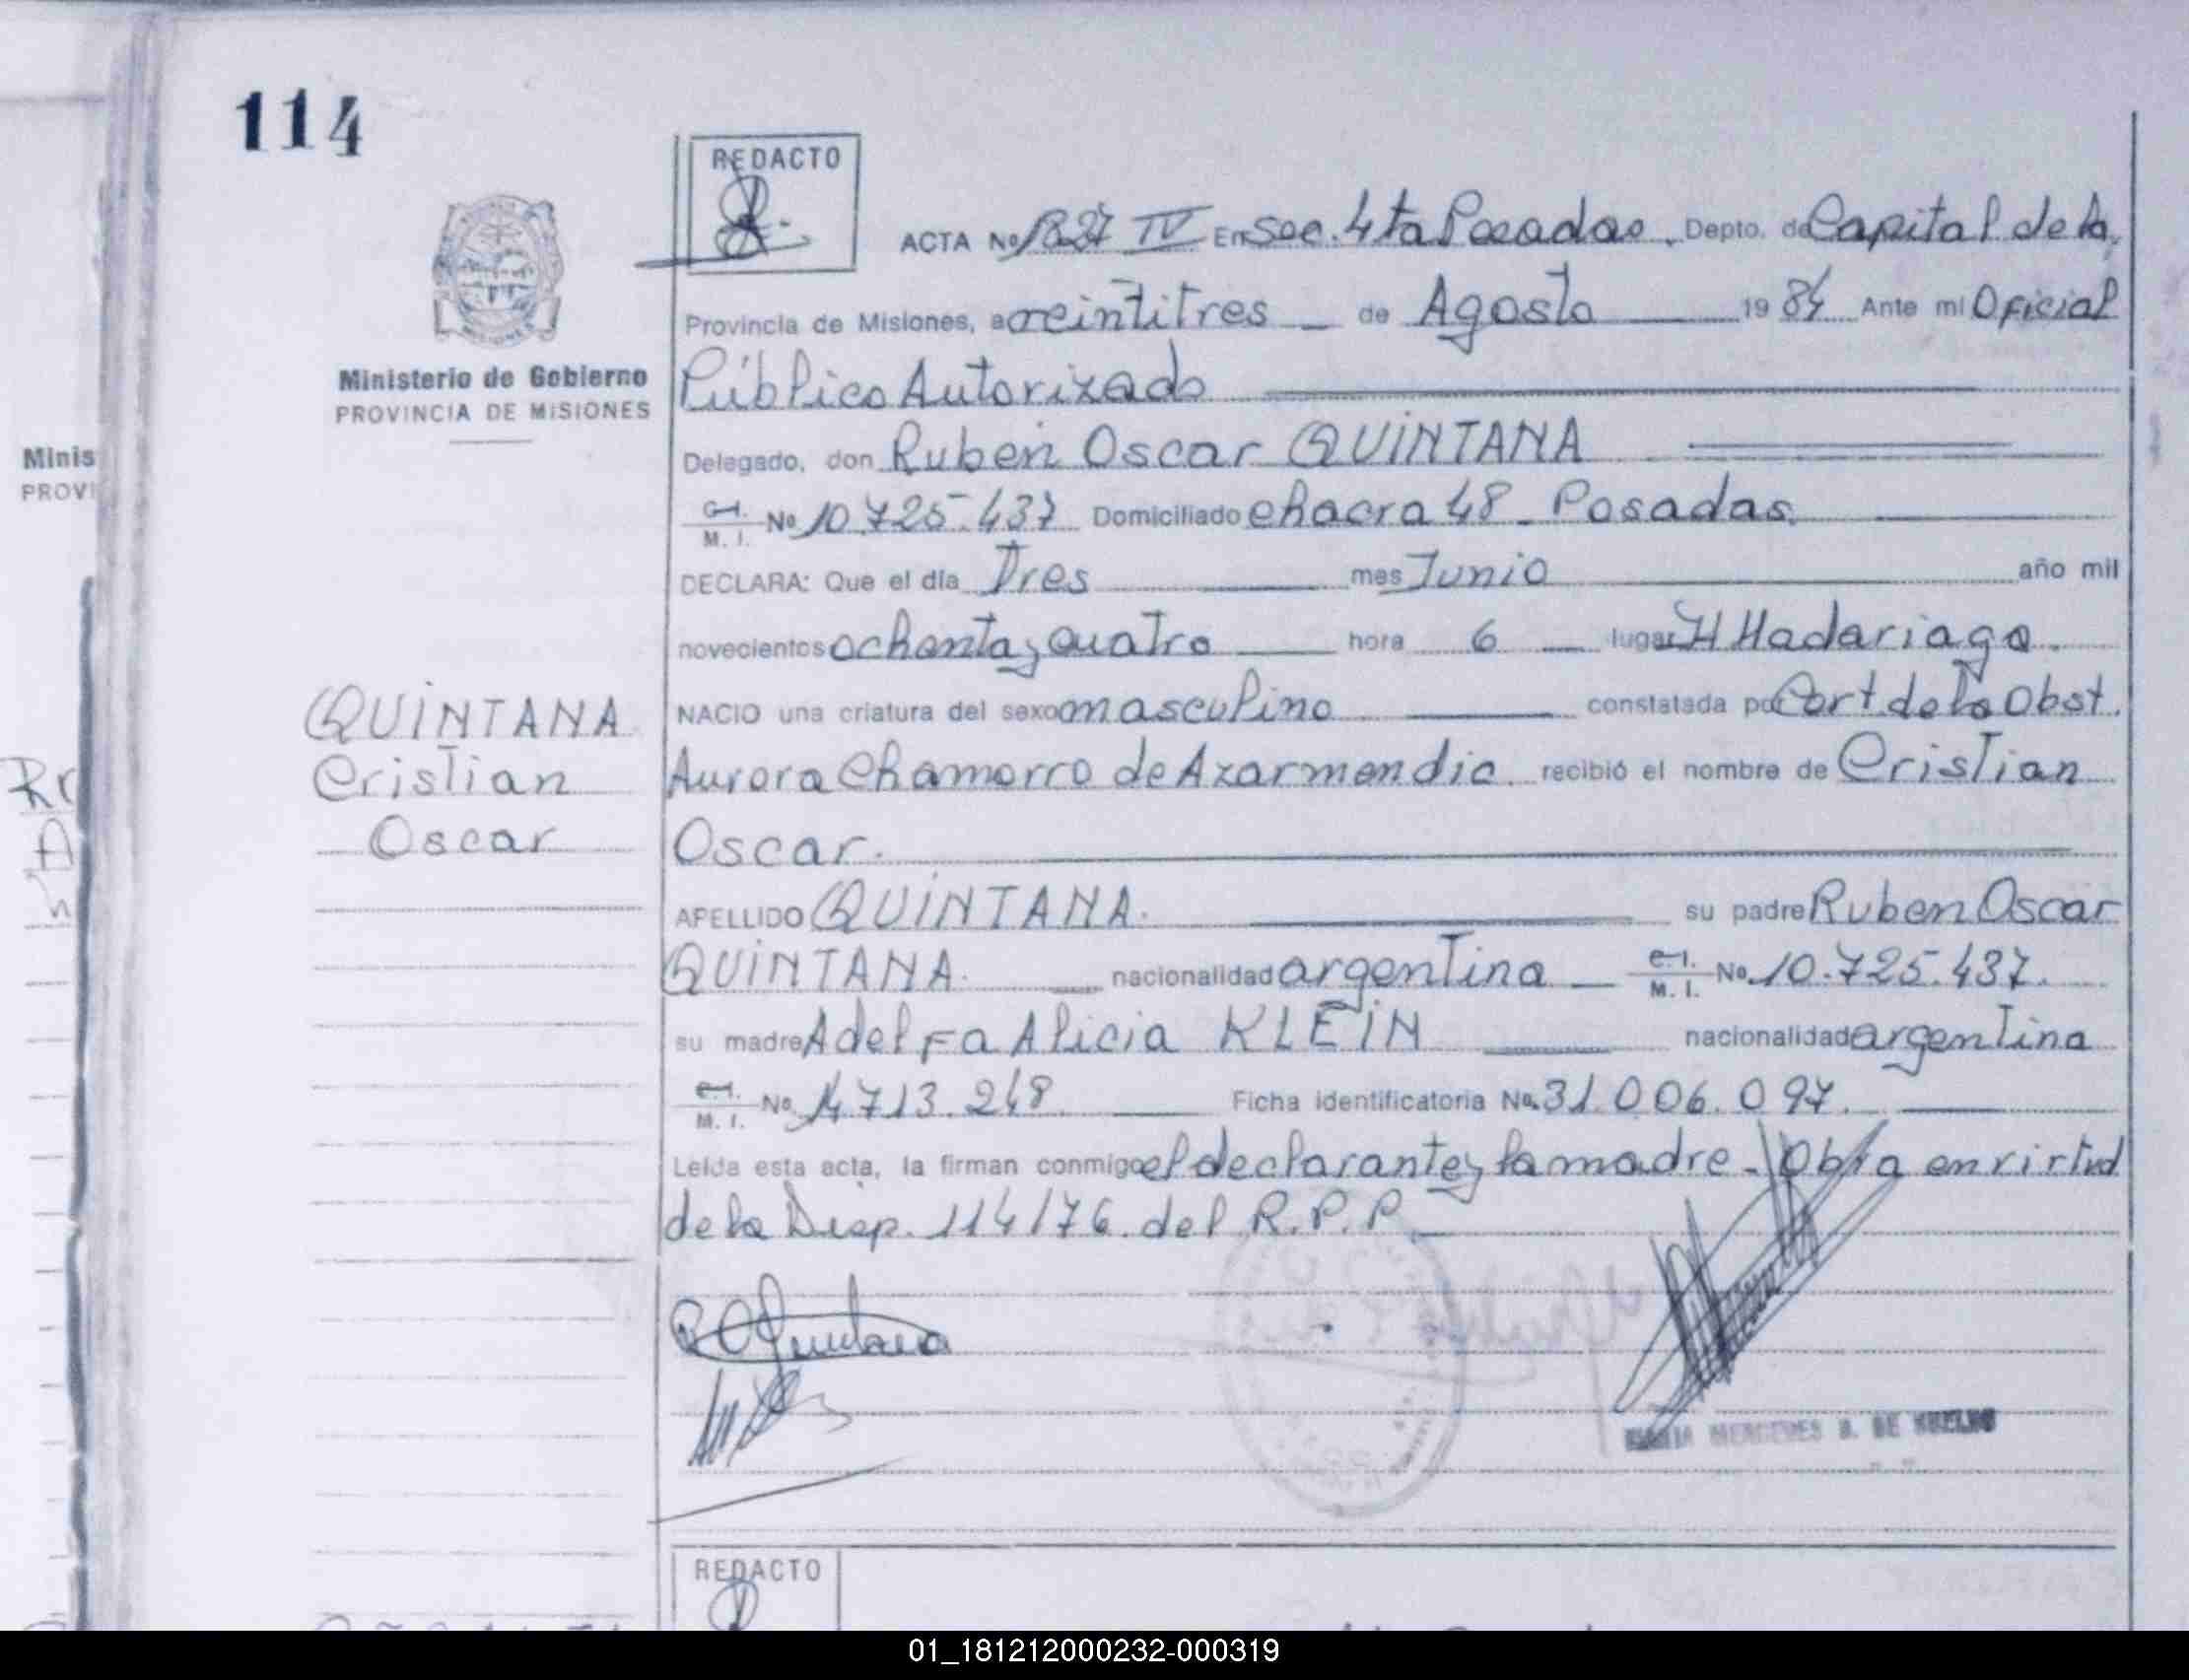 114
REDACTO
ACTA Nº 1827 IV En Sec. 4ta Posadas, Depto. de Capital de la
Provincia de Misiones, a veintitres de Agosto 1984 Ante mi Oficial
Ministerio de Gobierno
PROVINCIA DE MISIONES
Público Autorizado
Delegado, don Ruben Oscar QUINTANA
C.I. M. I. Nº 10.725.437 Domiciliado chacra 48 - Posadas.
DECLARA: Que el día Tres mes Junio año mil
novecientos ochenta y cuatro hora 6 lugar H Madariaga.
QUINTANA
Cristian
Oscar
NACIO una criatura del sexo masculino constatada por Cert. de la Obst.
Aurora Chamorro de Azarmendia recibió el nombre de Cristian
Oscar.
APELLIDO QUINTANA. su padre Ruben Oscar
QUINTANA. nacionalidad argentina C.I. M. I. No. 10.725.437.
su madre Adelfa Alicia KLEIN nacionalidad argentina
C.I. M. I. No. 14.713.248 Ficha identificatoria No. 31.006.097.
Leída esta acta, la firman conmigo el declarante y la madre - Obra en virtud
de la Disp. 114/76. del R.P.P
R O Quintana
MARIA MERCEDES B. DE
REDACTO
Minis
PROVI
01_181212000232-000319